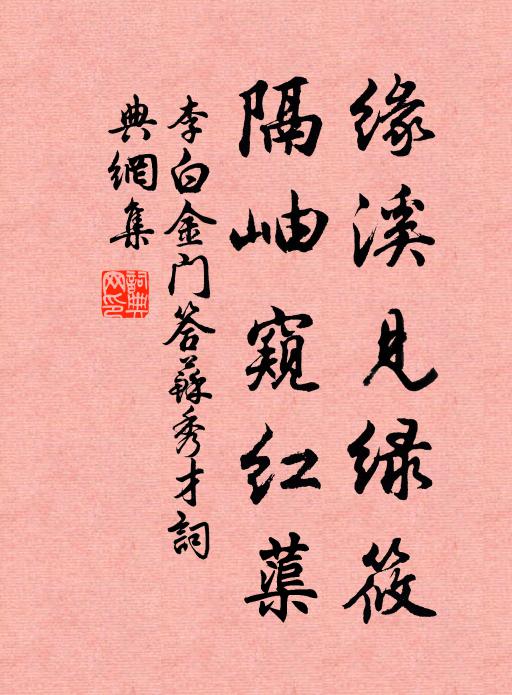 缘溪见绿筱
隔岫窥红蕖
李白金门答苏秀才詞
典網集
詞典网印